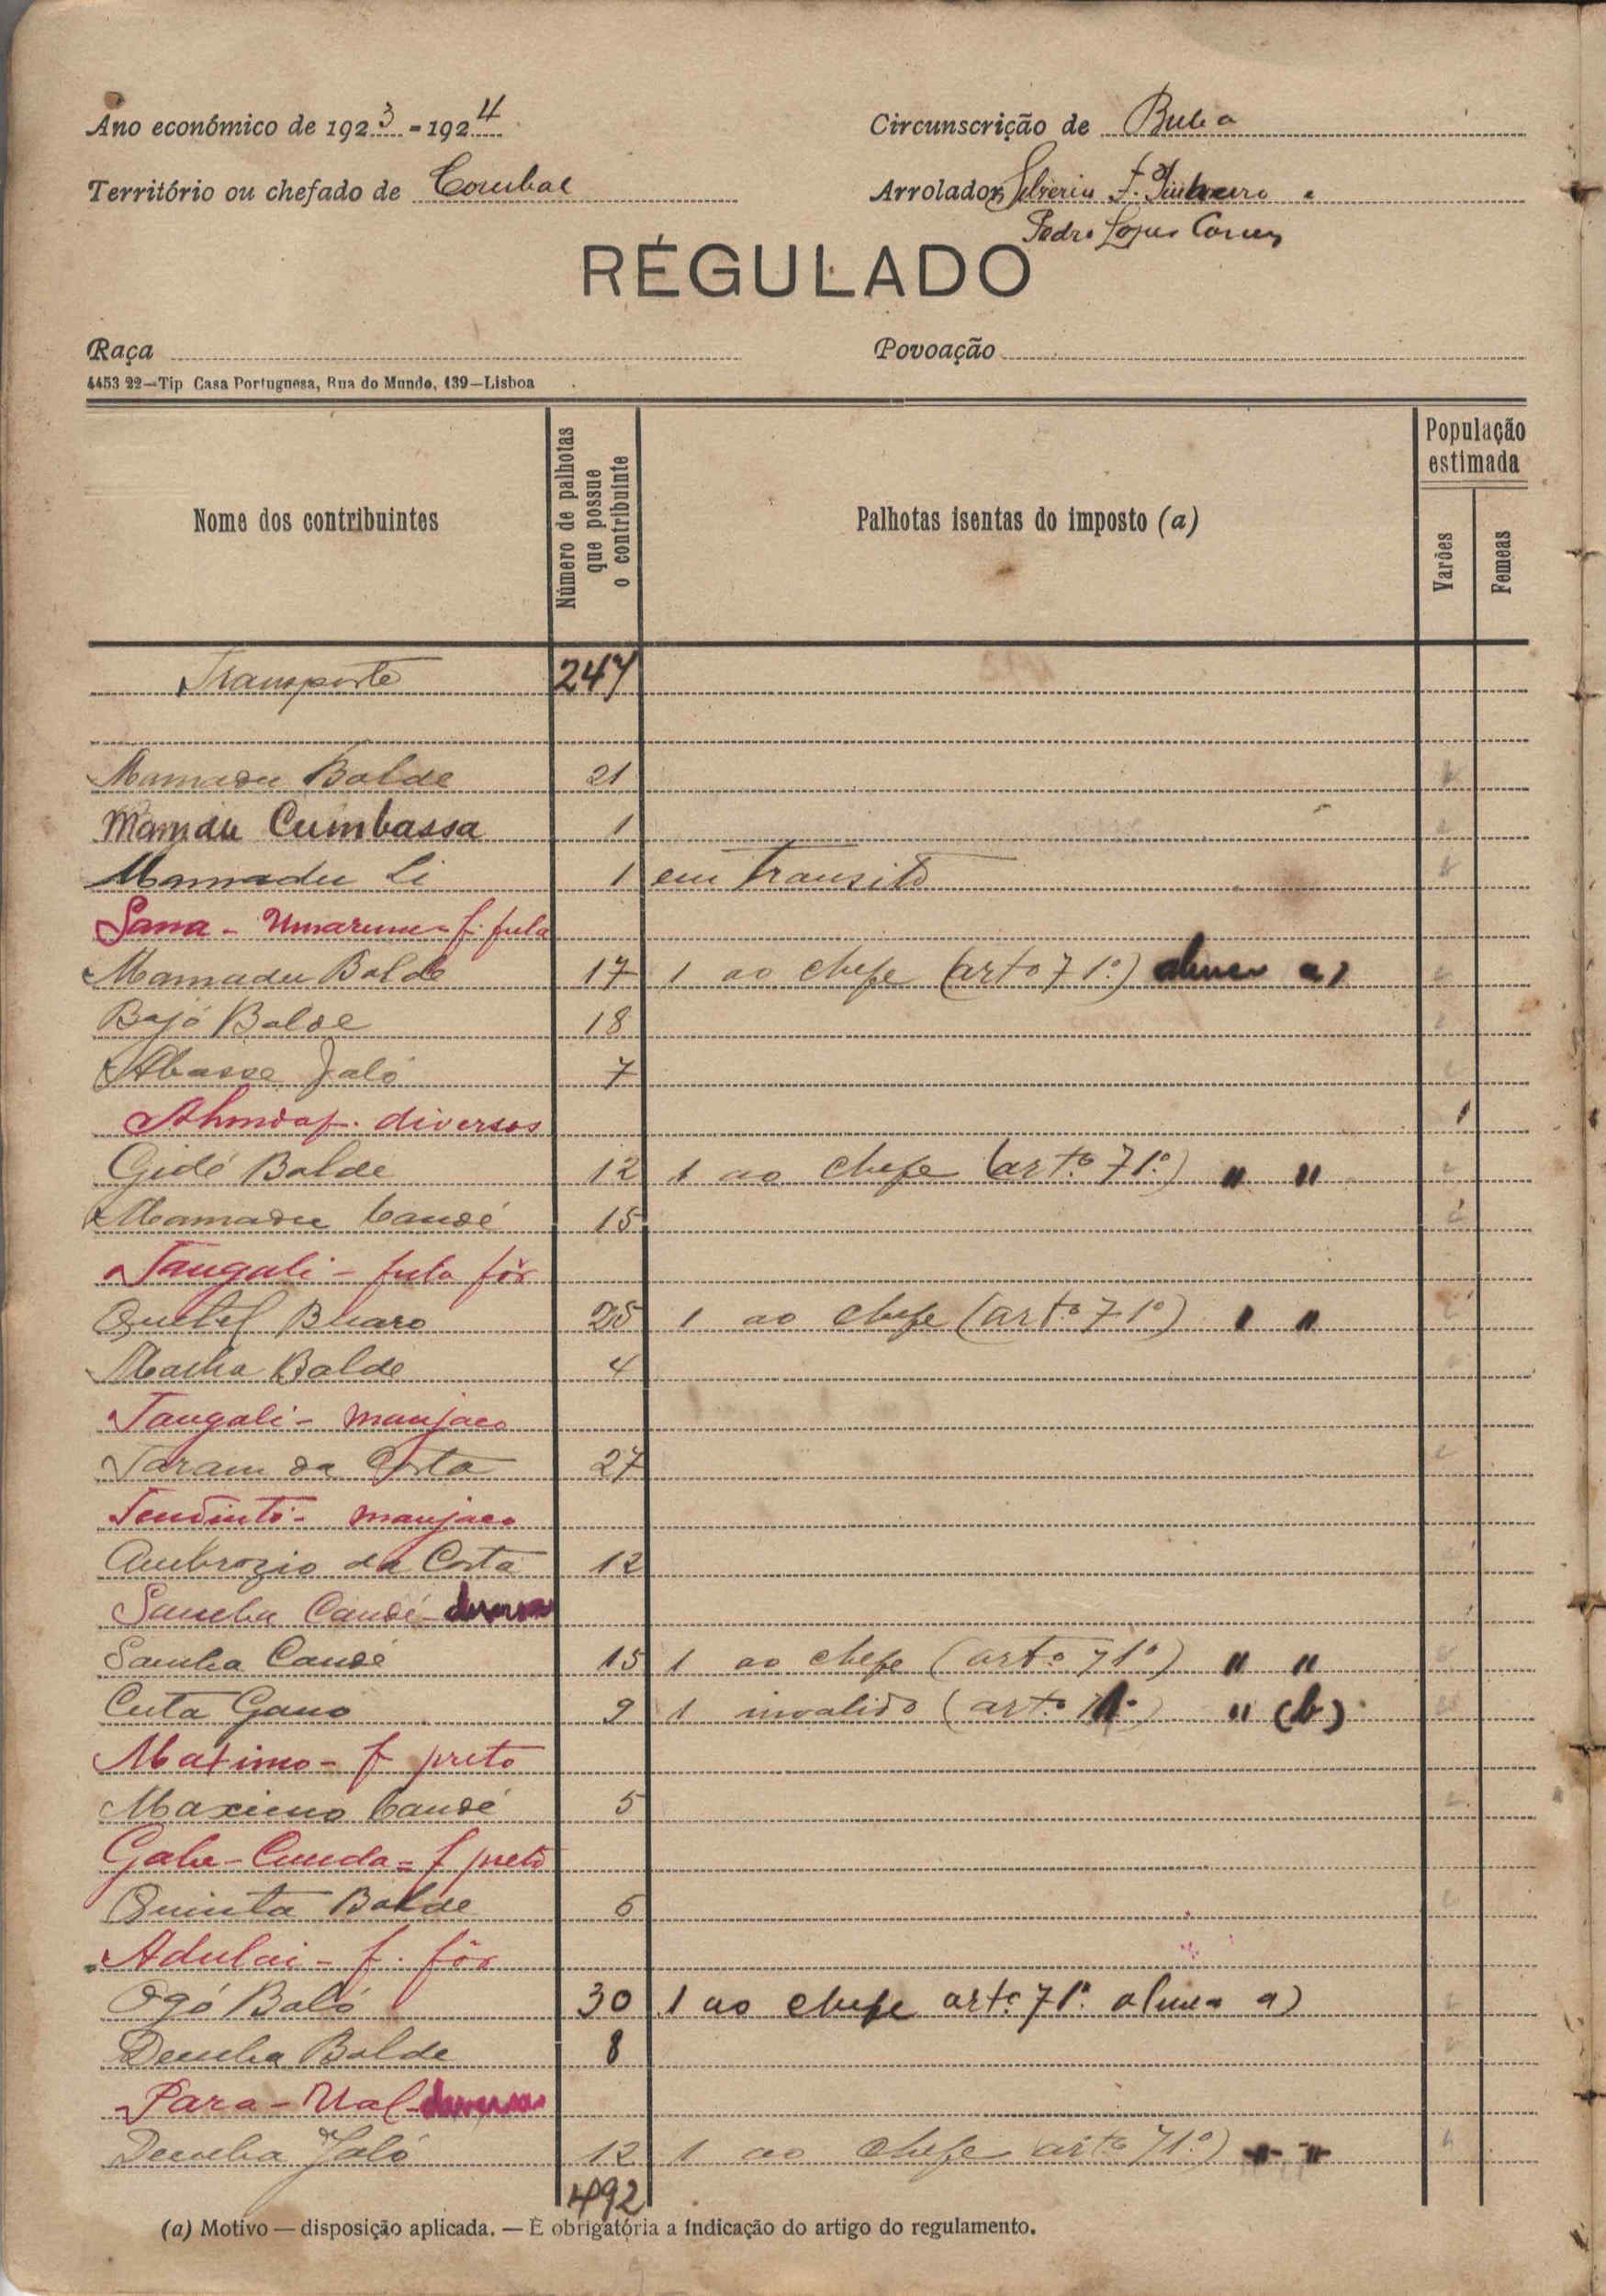 Ano económico de 1923-1924
Circunscrição de Buba
Território ou chefado de Corubal
Arrolador Silverio F. Pinheiro e
Pedro Lopes Correa
RÉGULADO
Raça
Povoação
4453 22—Tip Casa Portuguesa, Rua do Mundo, 139—Lisboa
Nome dos contribuintes
Número de palhotas que possue o contribuinte
Palhotas isentas do imposto (a)
População estimada
Varões
Femeas
Transporte 247
Mamadu Balde 21
Mamdu Cumbassa 1
Mamadu Li 1 em transito
Sana - f. fula
Mamadu Balde 17 1 ao chefe (artº 71º) alinea a)
Bajó Balde 18
Abasse Jaló 7
diversos 1
Gidó Balde 12 1 ao chefe (artº 71º) " "
Mamadu Candé 15
Tangali - fula fôr
Buaro 25 1 ao chefe (artº 71º) " "
Macha Balde 4
Tangali - manjaco
Taram da Costa 27
Tendinto - manjaco
Ambrozio da Costa 12
Samba Candé - diversos
Samba Candé 15 1 ao chefe (artº 71º) " "
Cuta Gano 9 1 invalido (artº " (b)
Maximo - f preto
Maximo Candé 5
Gabe - Cunda = f preto
Quinta Balde 6
Adulai - f. fôr
Ogó Baló 30 1 ao chefe artº 71º alinea a)
Demba Balde 8
Para - Ual - diversos
Demba Jaló 12 1 ao chefe artº 71º) " "
492
(a) Motivo — disposição aplicada. — É obrigatória a indicação do artigo do regulamento.